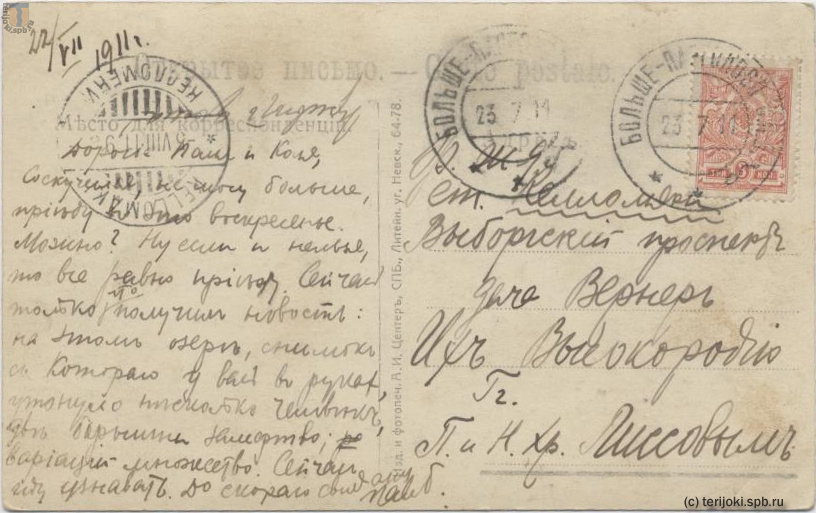 22/VII 1911г.
Открытое письмо. — Carte postale.
Мѣсто для корреспонденціи.
Дорогіе Паш и Коля,
Соскучился, не могу больше,
пріѣду въ это воскресенье.
Можно? Ну если и нельзя,
то все равно пріѣду. Сейчас
только что получил новость:
на этом озерѣ, снимокъ
съ котораго у вас въ руках,
утонуло нѣсколько человѣкъ,
двѣ барышни замертво;
варіацій множество. Сейчас
иду узнавать. До скораго свиданія
KELLOMÄKI
КЕЛЛОМЯКИ
БОЛЬШЕ-
23 7 11
БОЛЬШЕ-
23 7 11
ст. Келломяки
Выборгскій проспектъ
дача Вернеръ
Ихъ Высокородію
Гг.
П. и Н. Хр. Лиссовымъ
Изд. и фотопеч. А. И. Центеръ, СПБ., Литейн. уг. Невск., 64-78.
ТРИ 3 КОП
terijoki.spb.ru
(c) terijoki.spb.ru